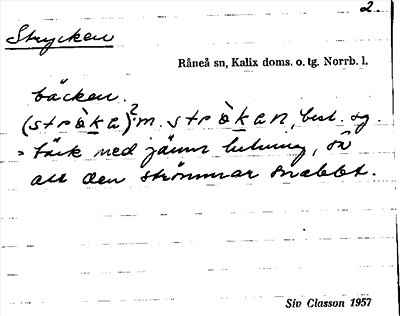 2.
Strycken
Råneå sn, Kalix doms. o. tg. Norrb. l.
bäcken.
(stròka)² m. stròkan, best. sg.
= bäck med jämn lutning, så
att den strömmar snabbt.
Siv Classon 1957